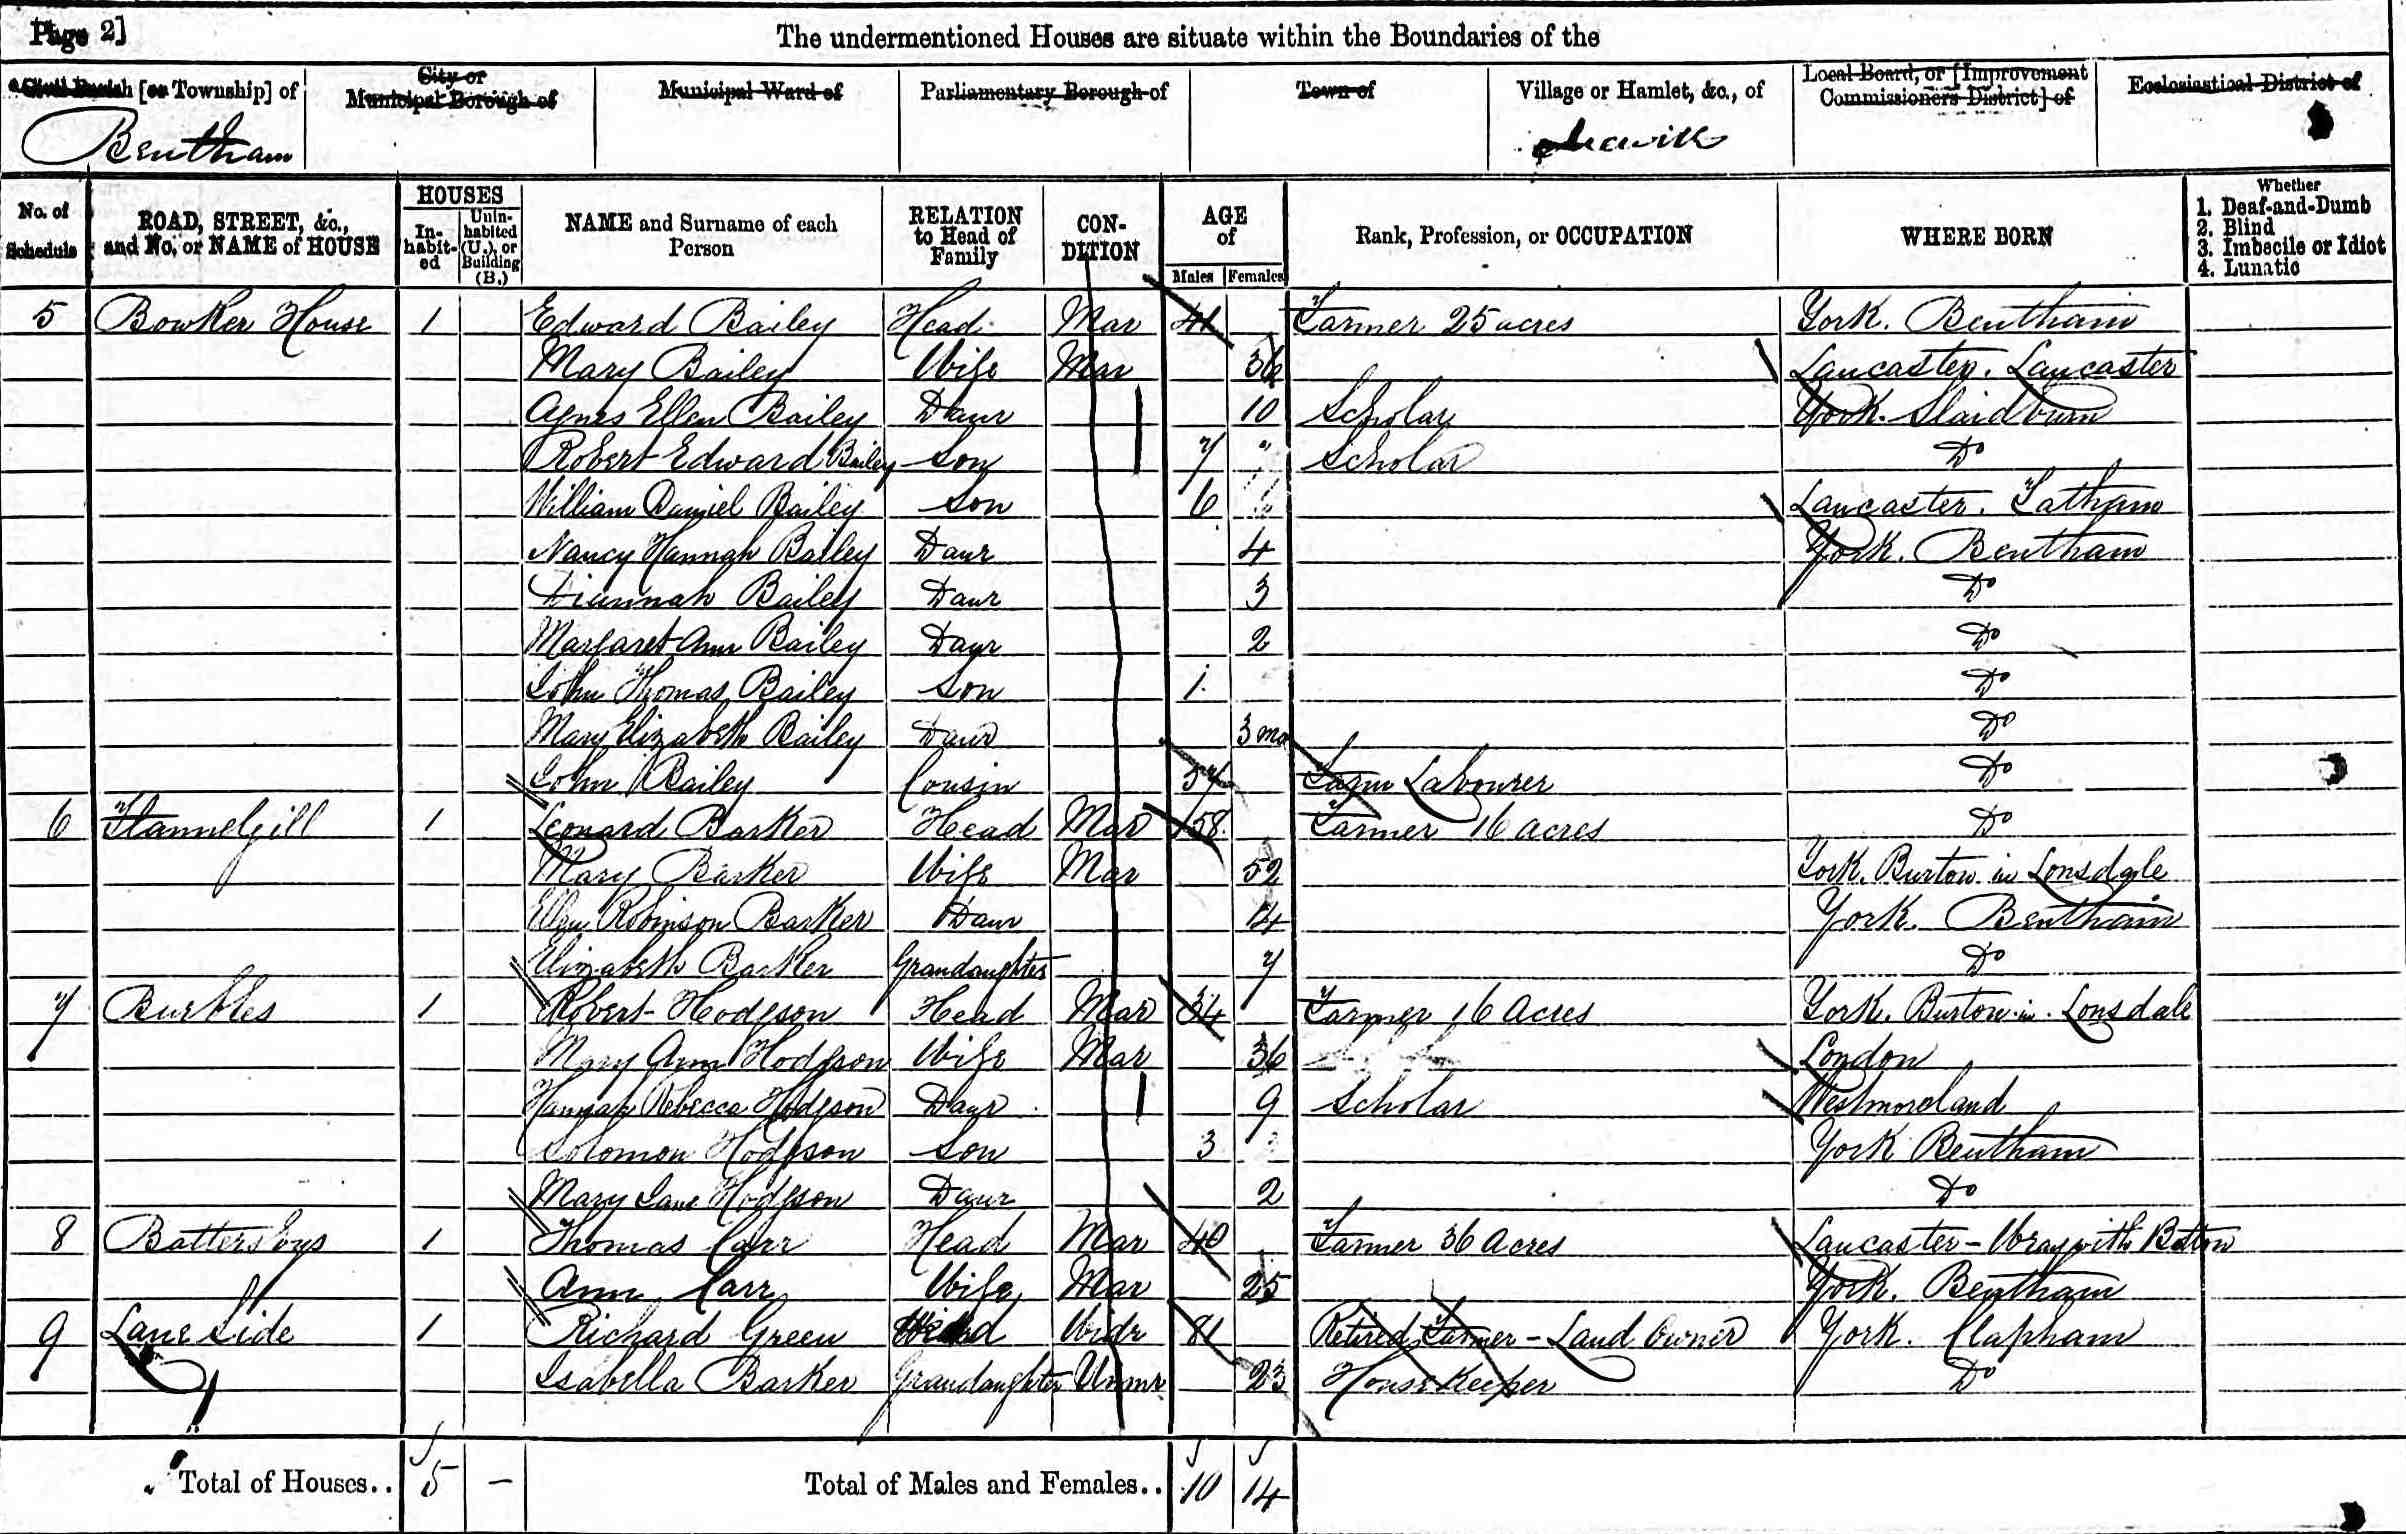 Page 2]
The undermentioned Houses are situate within the Boundaries of the
Civil Parish [or Township] of | City or Municipal Borough of | Municipal Ward of | Parliamentary Borough of | Town of | Village or Hamlet, &c., of | Local Board, or [Improvement Commissioners District] of | Ecclesiastical District of
Bentham
No. of Schedule | ROAD, STREET, &c., and No. or NAME of HOUSE | HOUSES Inhabited | Uninhabited (U.), or Building (B.) | NAME and Surname of each Person | RELATION to Head of Family | CONDITION | AGE of Males | Females | Rank, Profession, or OCCUPATION | WHERE BORN | Whether 1. Deaf-and-Dumb 2. Blind 3. Imbecile or Idiot 4. Lunatic
5 Bowker House 1 Edward Bailey Head Mar 41 Farmer 25 acres York. Bentham
Mary Bailey Wife Mar 36 Lancaster. Lancaster
Agnes Ellen Bailey Daur 10 Scholar York. Slaidburn
Robert Edward Bailey Son 7 " Scholar Do
William Daniel Bailey Son 6 Lancaster. Tatham
Nancy Hannah Bailey Daur 4 York. Bentham
Diannah Bailey Daur 3 Do
Margaret Ann Bailey Daur 2 Do
John Thomas Bailey Son 1 Do
Mary Elizabeth Bailey Daur 3 mo Do
John Bailey Cousin 57 Farm Labourer Do
6 Flannelgill 1 Leonard Barker Head Mar 58 Farmer 16 acres Do
Mary Barker Wife Mar 52 York. Burton in Lonsdale
Ellen Robinson Barker Daur 14 York. Bentham
Elizabeth Barker Grandaughter 7 Do
7 Burbles 1 Robert Hodgson Head Mar 34 Farmer 16 Acres York. Burton in Lonsdale
Mary Ann Hodgson Wife Mar 36 London
Hannah Rebecca Hodgson Daur 9 Scholar Westmoreland
Solomon Hodgson Son 3 York Bentham
Mary Jane Hodgson Daur 2 Do
8 Battersbys 1 Thomas Carr Head Mar 40 Farmer 36 Acres Lancaster - Wray with Botton
Ann Carr Wife Mar 25 York. Bentham
9 Lane Side 1 Richard Green Head Widr 81 Retired Farmer - Land Owner York. Clapham
Isabella Barker Grandaughter Unmr 23 House Keeper Do
Total of Houses.. 5 - Total of Males and Females.. 10 14